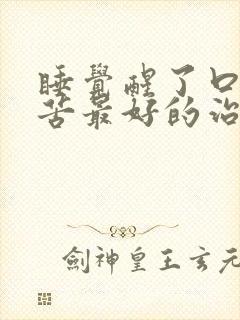 睡覺醒了口
苦最好的治
劍神皇王玄元